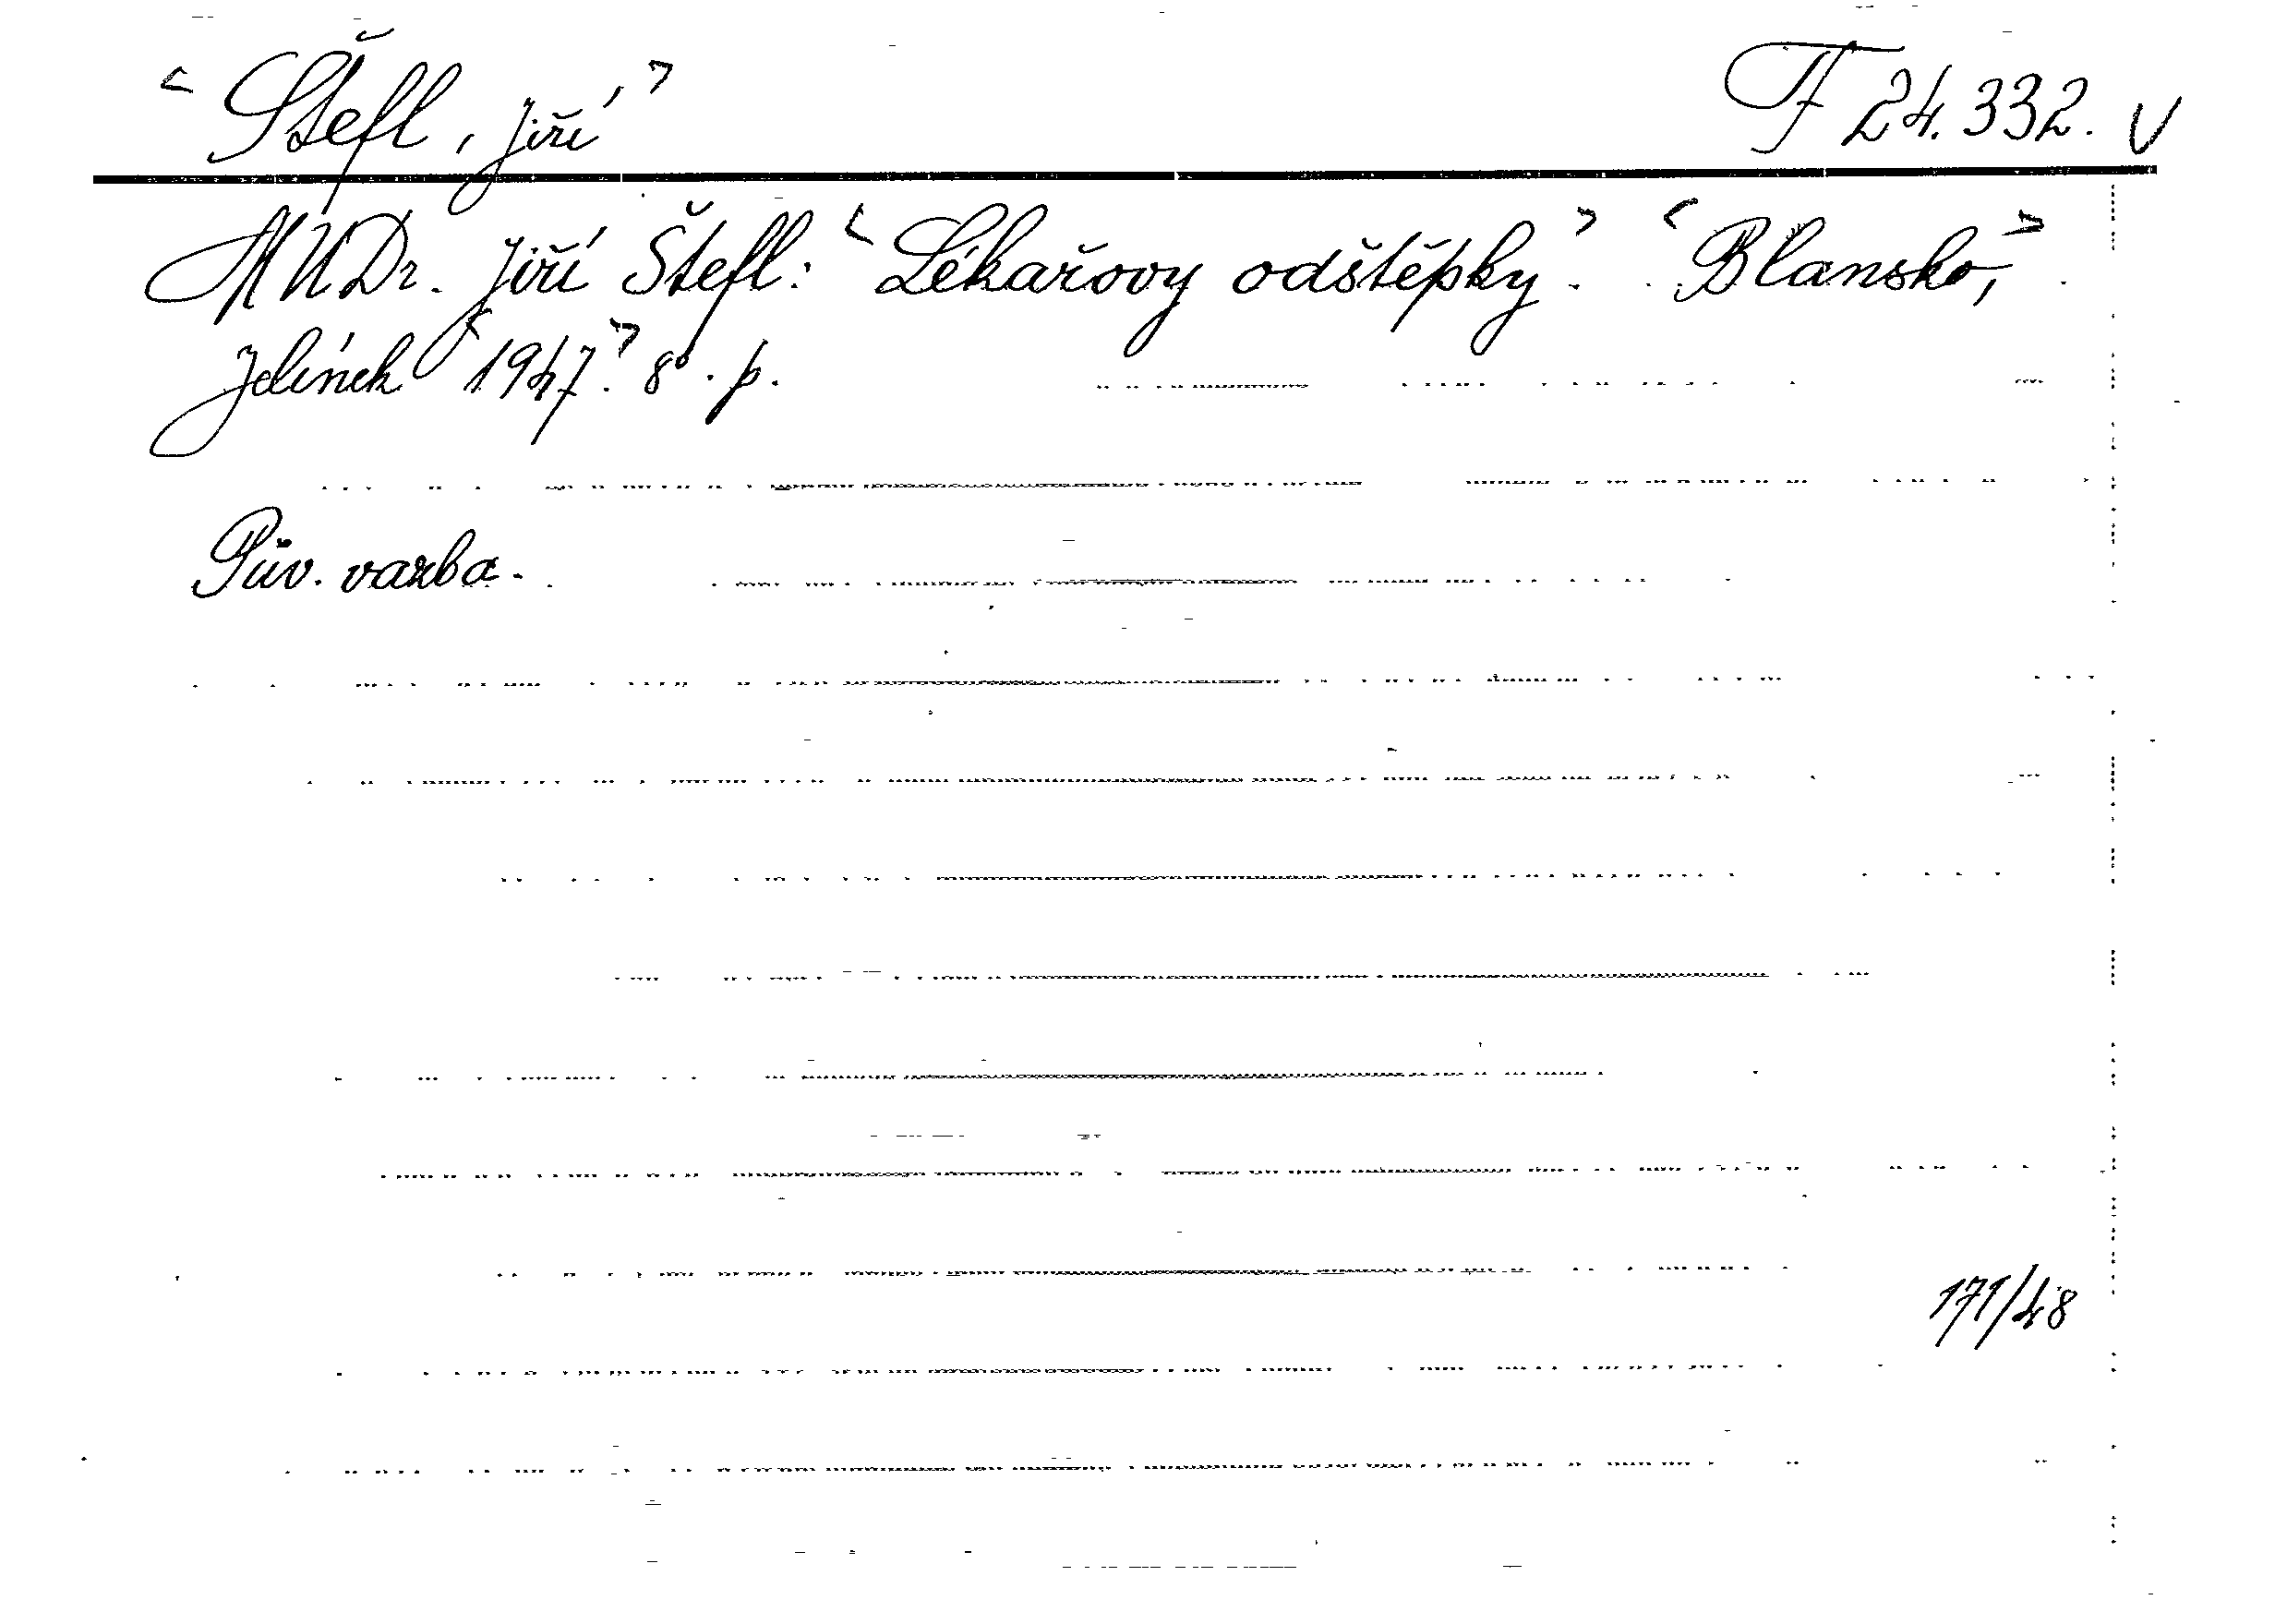 <Štefl, Jiří> F 24.332. V
MUDr. Jiří Štefl: <Lékařovy odštěpky>. <Blansko,>
Jelínek <1947>. 8°. p.
Pův. vazba.
171/48